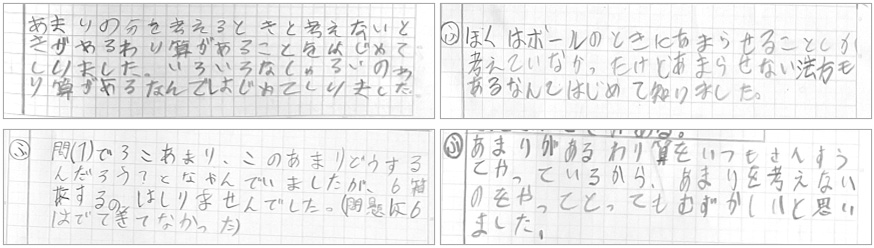 あまりの分を考えるときと考えないと
きがあるわり算があることをはじめて
しりました。いろいろなしゅるいのわ
り算があるなんてはじめてしりました
㋫ ぼくはボールのときにあまらせることしか
考えていなかったけどあまらせない法方も
あるなんてはじめて知りました。
㋫ 問(1)で3こあまり、このあまりどうする
んだろう?となやんでいましたが、6箱
するの、はしりませんでした。(問題に6
はでてきてなかった)
㋫ あまりがあるわり算をいつもさんすう
でやっているから、あまりを考えない
のをやってとってもむずかしいと思い
ました。